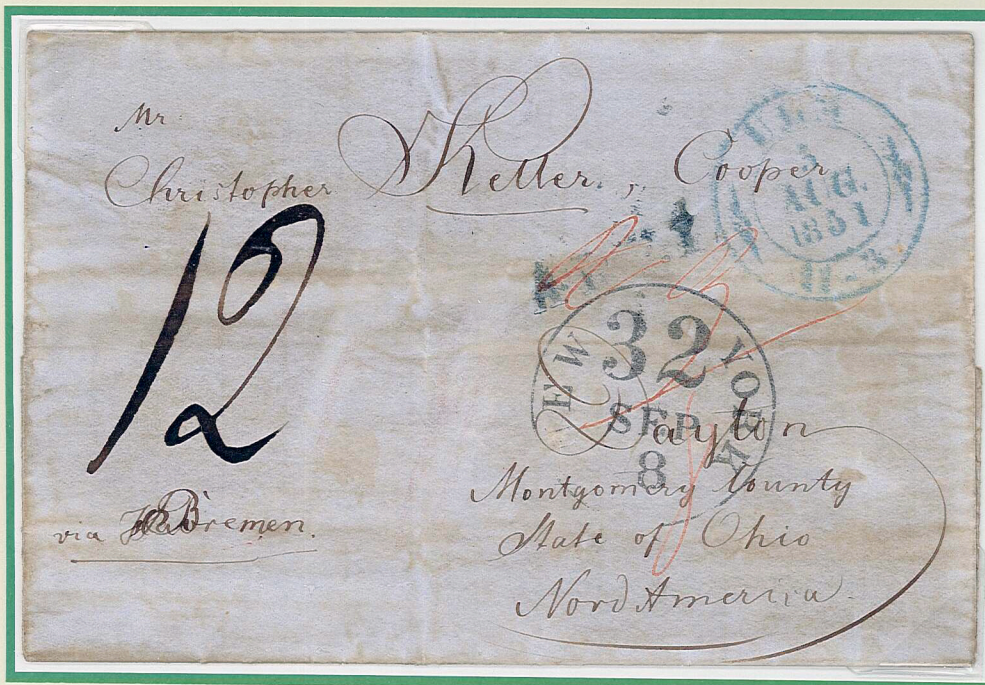 Mr
Christopher Keller, Cooper
ULM
3
AUG.
1851
II-3
12
NEW YORK
32
SEP
8
Dayton
Montgomery County
State of Ohio
Nord America.
via Bremen.